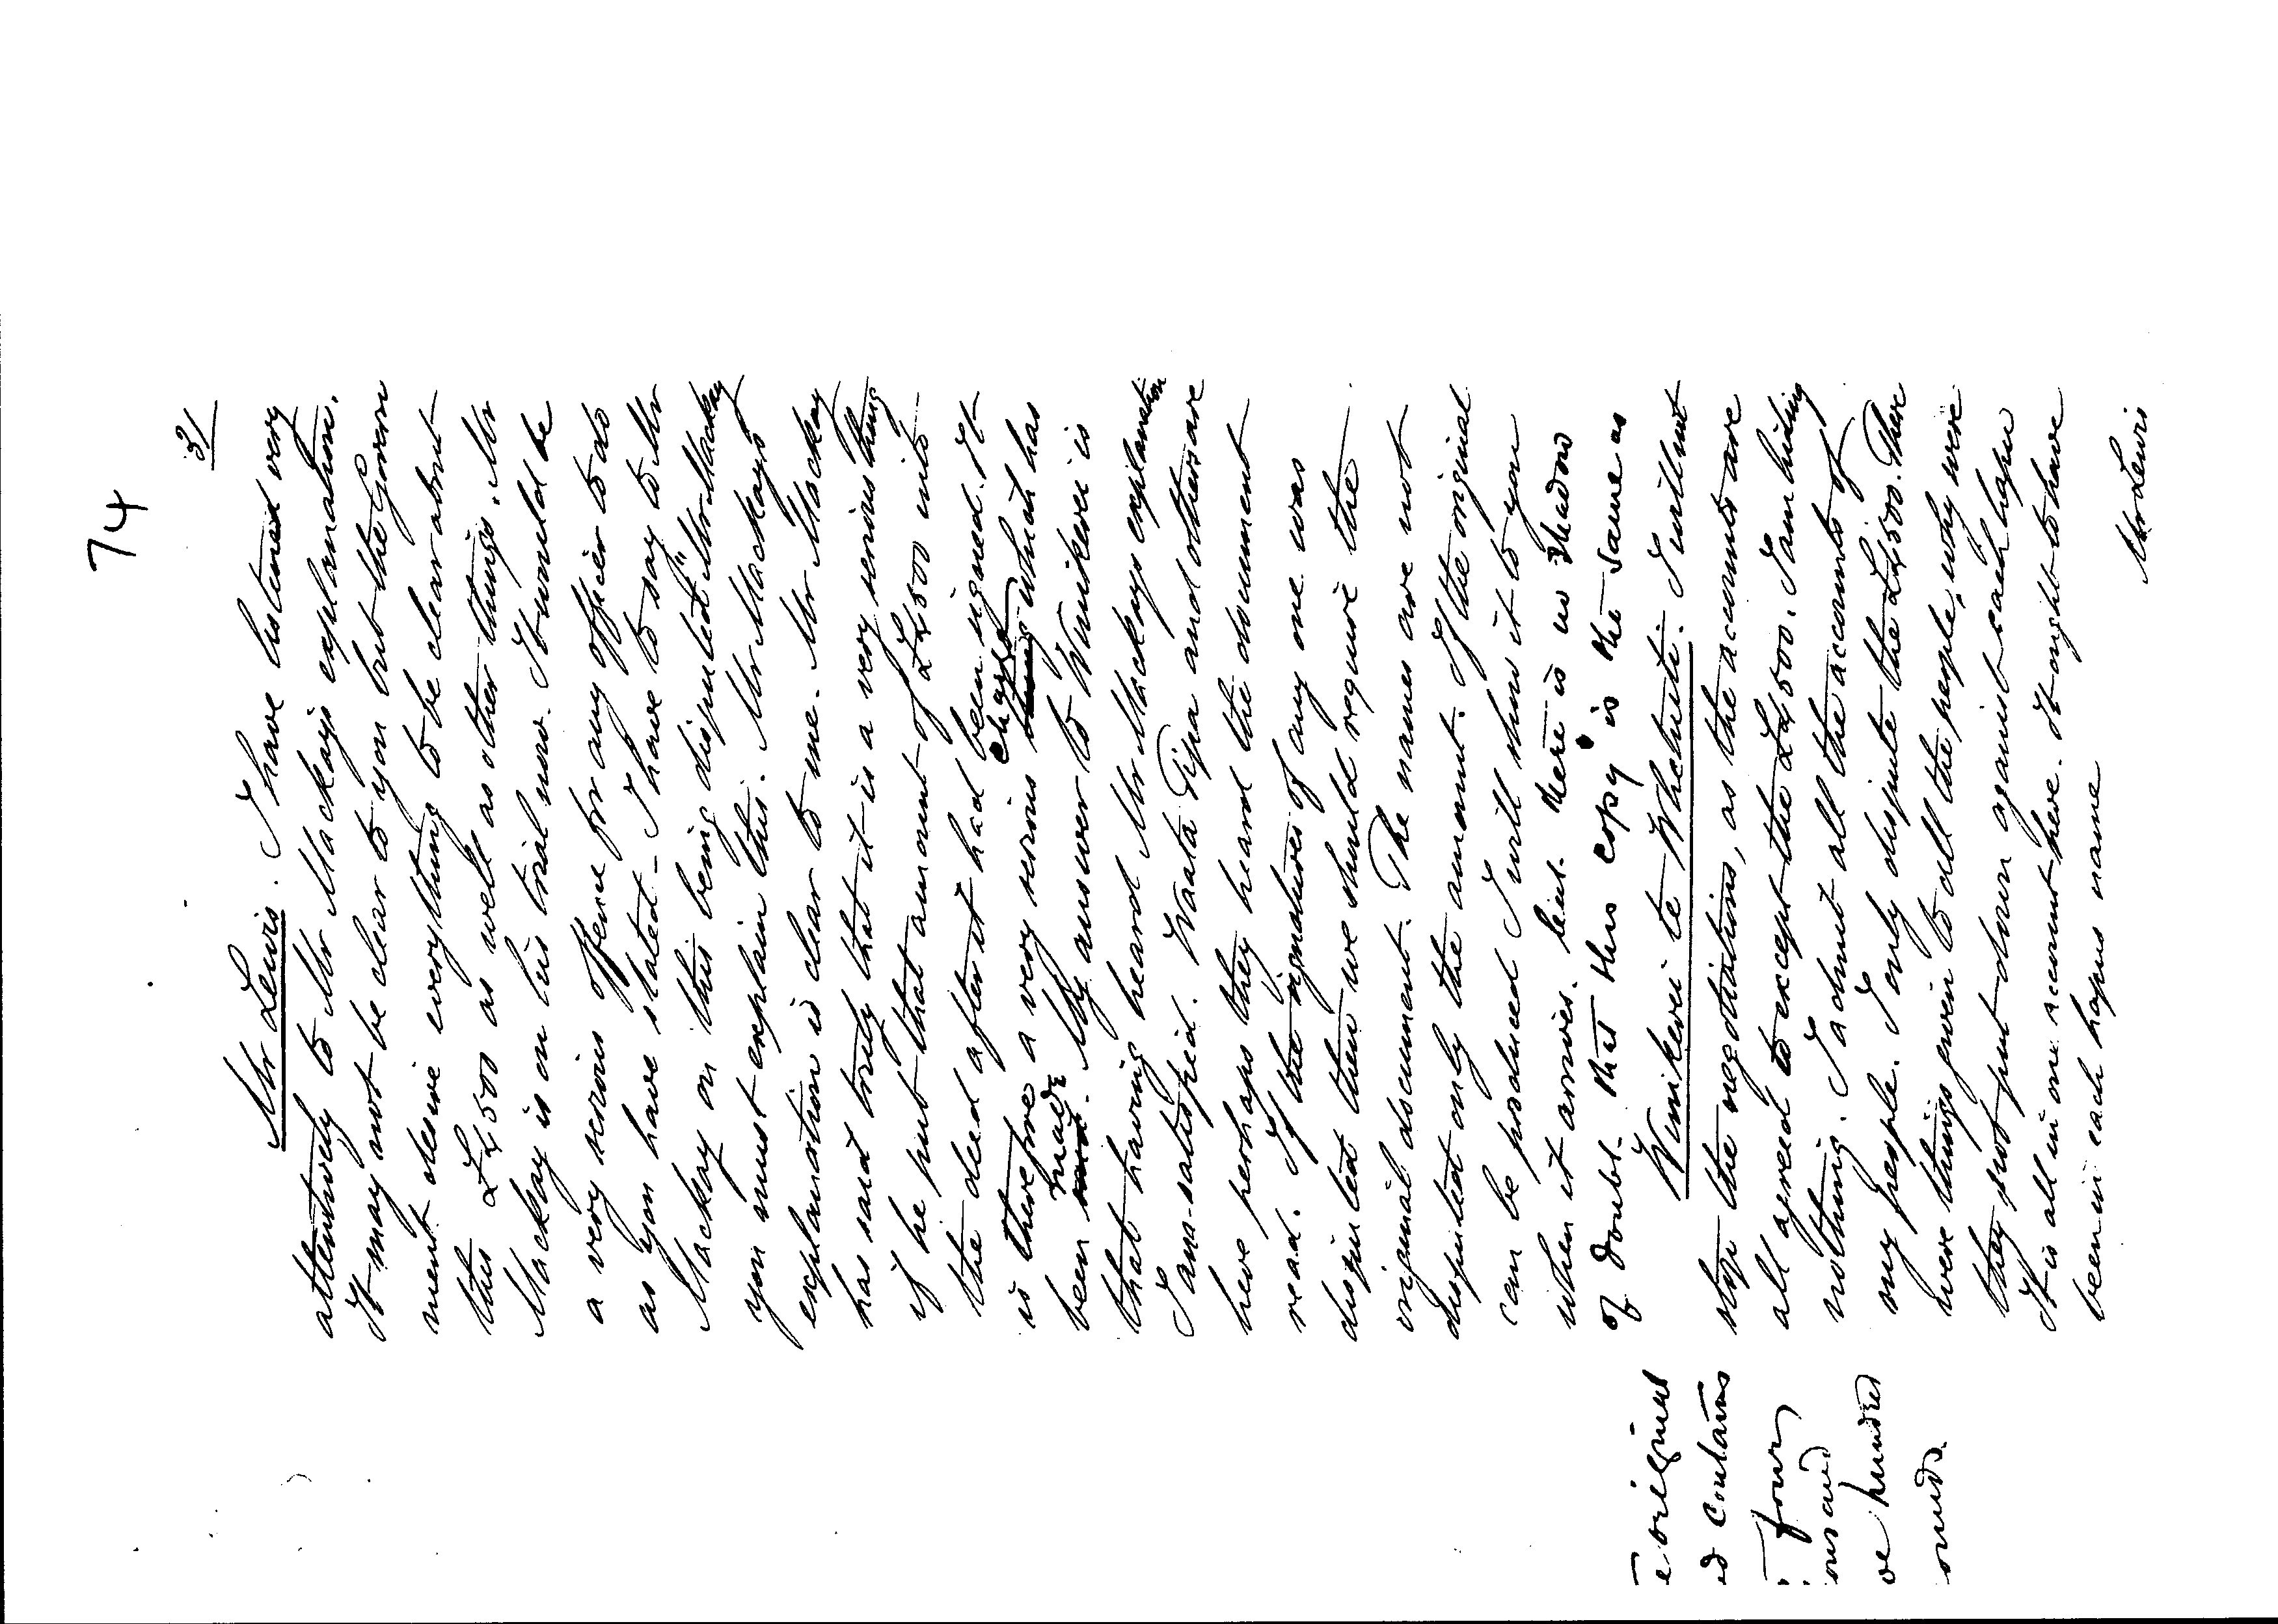 74
31
Mr Lewis. I have listened very
attentively to Mr Mackays explanation.
It may not be clear to you but the Govern
ment desire everything to be clear about
this £4,500 as well as other things. Mr
Mackay is on his trial now. It would be
a very serious offence for any officer to do
as you have stated - I have to say to Mr
Mackay on this being disputed "Mr Mackay
you must explain this. Mr Mackays
explanation is clear to me. Mr Mackay
has said truly that it is a very serious thing
if he put that amount of £4,500 into
the deed after it had been signed. It
is therefore a very serious charge what has
been made. My answer to Winikerei is
that having heard Mr Mackays explanation
I am satisfied. Waata Tipa and others are
here perhaps they heard the document
read. If the signatures of any one was
disputed then we should require the
original document. The names are not
disputed only the amount. If the original
can be produced I will show it to you
when it arrives. but there is no shadow
of doubt that this copy is the same as
Winikerei te Whetuiti. I will not
stop the negotiations, as the accounts are
all agreed to except the £4,500. I am hiding
nothing. I admit all the accounts of
my people. I only dispute the £4,500. There
were things given to all the people, why were
they not put down against each hapu
It is all in one account here. It ought to have
been in each hapus name
Mr Lewis
e original
ed contains
four
ousand
ve hundred
ounds.